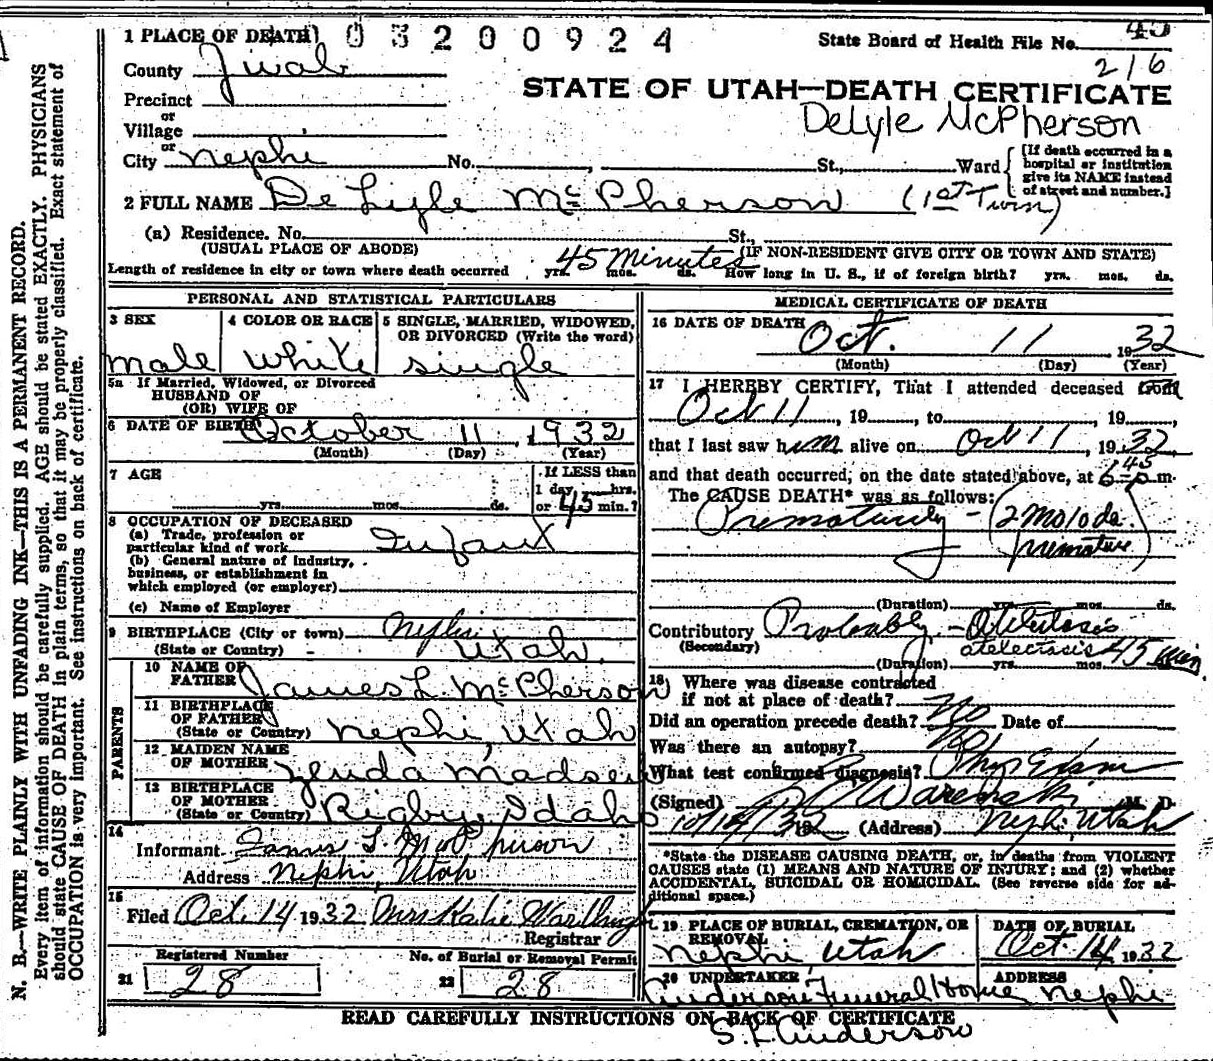 1 PLACE OF DEATH 03200924 State Board of Health File No. 45
County Juab 216
STATE OF UTAH—DEATH CERTIFICATE
Precinct
or
Village
DeLyle McPherson
or
City Nephi No. St., Ward [If death occurred in a hospital or institution give its NAME instead of street and number.]
2 FULL NAME De Lyle McPherson (1st Twin)
(a) Residence. No. St.,
(USUAL PLACE OF ABODE) (IF NON-RESIDENT GIVE CITY OR TOWN AND STATE)
Length of residence in city or town where death occurred yrs. mos. ds. 45 Minutes How long in U. S., if of foreign birth? yrs. mos. ds.
PERSONAL AND STATISTICAL PARTICULARS
3 SEX 4 COLOR OR RACE 5 SINGLE, MARRIED, WIDOWED,
OR DIVORCED (Write the word)
male white single
5a If Married, Widowed, or Divorced
HUSBAND OF
(OR) WIFE OF
6 DATE OF BIRTH October 11, 1932
(Month) (Day) (Year)
7 AGE If LESS than
1 day hrs.
yrs. mos. ds. or 45 min.?
8 OCCUPATION OF DECEASED
(a) Trade, profession or
particular kind of work Infant
(b) General nature of industry,
business, or establishment in
which employed (or employer)
(c) Name of Employer
9 BIRTHPLACE (City or town) Nephi
(State or Country) Utah.
PARENTS
10 NAME OF
FATHER James L. McPherson
11 BIRTHPLACE
OF FATHER
(State or Country) Nephi, Utah
12 MAIDEN NAME
OF MOTHER Madsen
13 BIRTHPLACE
OF MOTHER
(State or Country) Rigby, Idaho
14
Informant James L. McPherson
Address Nephi, Utah
15
Filed Oct. 14 1932 Mrs Katie
Registrar
Registered Number No. of Burial or Removal Permit
21 28 22 28
MEDICAL CERTIFICATE OF DEATH
16 DATE OF DEATH Oct. 11, 1932
(Month) (Day) (Year)
17 I HEREBY CERTIFY, That I attended deceased from
Oct 11, 19 , to , 19
that I last saw him alive on Oct 11, 1932
and that death occurred, on the date stated above, at 6 45 p m.
The CAUSE DEATH* was as follows:
Prematurity - (2 mo 10 da.
premature)
(Duration) yrs. mos. ds.
Contributory Probably - Atelectasis
(Secondary) atelectasis 45 min
(Duration) yrs. mos.
18 Where was disease contracted
if not at place of death?
Did an operation precede death? No Date of
Was there an autopsy? No
What test confirmed diagnosis? Phys Exam
(Signed) M. D.
10/14/32 19 (Address) Nephi, Utah
*State the DISEASE CAUSING DEATH, or, in deaths from VIOLENT
CAUSES state (1) MEANS AND NATURE OF INJURY; and (2) whether
ACCIDENTAL, SUICIDAL OR HOMICIDAL. (See reverse side for ad-
ditional space.)
19 PLACE OF BURIAL, CREMATION, OR
REMOVAL DATE OF BURIAL
Nephi, Utah Oct. 14 1932
20 UNDERTAKER ADDRESS
Anderson Funeral Home Nephi
READ CAREFULLY INSTRUCTIONS ON BACK OF CERTIFICATE
S. L. Anderson
N. B.—WRITE PLAINLY WITH UNFADING INK—THIS IS A PERMANENT RECORD.
Every item of information should be carefully supplied. AGE should be stated EXACTLY. PHYSICIANS
should state CAUSE OF DEATH in plain terms, so that it may be properly classified. Exact statement of
OCCUPATION is very important. See instructions on back of certificate.